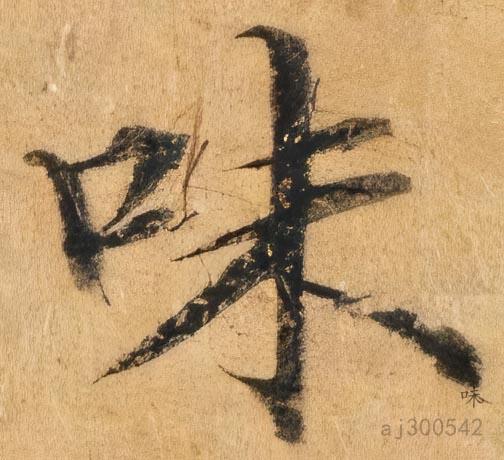 味
味
aj300542